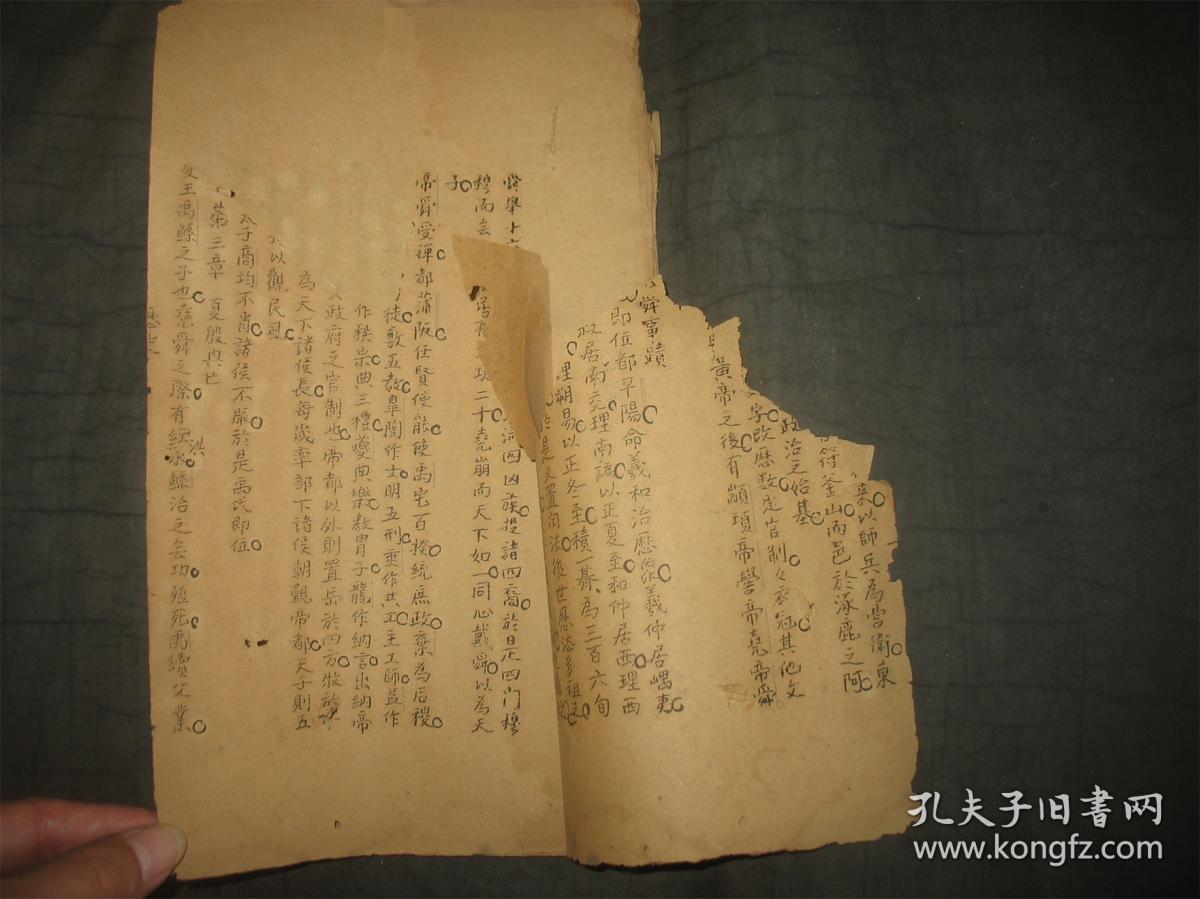 以師兵為營衛東
符釜山而邑於涿鹿之阿
政治之始基
字改歷數定官制々衣冠其他文
黃帝之後有顓頊帝嚳帝堯帝舜
舜事蹟
即位都平陽命羲和治歷象羲仲居嵎夷
叔居南交理南譌以正夏至和仲居西理西
理朔易以正冬至積一朞為三百六旬
於是又置閏法後世歷法多祖之
舉十
河四凶族投諸四裔於是四門穆
穆而
功二十堯崩而天下如一同心戴舜以為天
子
帝舜受禪都蒲阪任賢使能使禹宅百揆統庶政棄為后稷
徒敷五教皋陶作士明五刑垂作共工主工師益作
作秩宗典三禮夔典樂教冑子龍作納言出納帝
政府之官制也帝都以外則置岳於四方牧於
為天下諸侯長每歲率部下諸侯朝觀帝都天子則五
以觀民風
子商均不肖諸侯不服於是禹氏即位
第三章 夏殷興亡
王禹鯀之子也堯舜之際有洪水鯀治之無功殛死禹續父業
孔夫子旧书网
www.kongfz.com